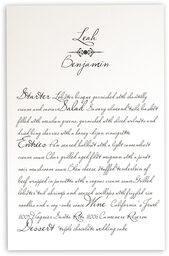 Leah
Benjamin
Starter Lobster bisque garnished with chantilly
cream and caviar Salad Savory almond tuile basket
filled with arcadian greens, garnished with sliced walnuts and
dried bing cherries with a honey-dijon vinaigrette
Entrées Pan seared halibut with a light
cream sauce Char grilled aged filet mignon with a pinot
noir mushroom sauce Bleu cheese stuffed tenderloin of
beef wrapped in and topped with a cognac cream sauce Grilled
lobster tail shrimp and scallops with frizzled rice
noodles and a soy-sake sauce Wine California a Jewel
2007 Viognier Santa Rita 2005 Carmenere Reserva
Dessert triple chocolate wedding cake